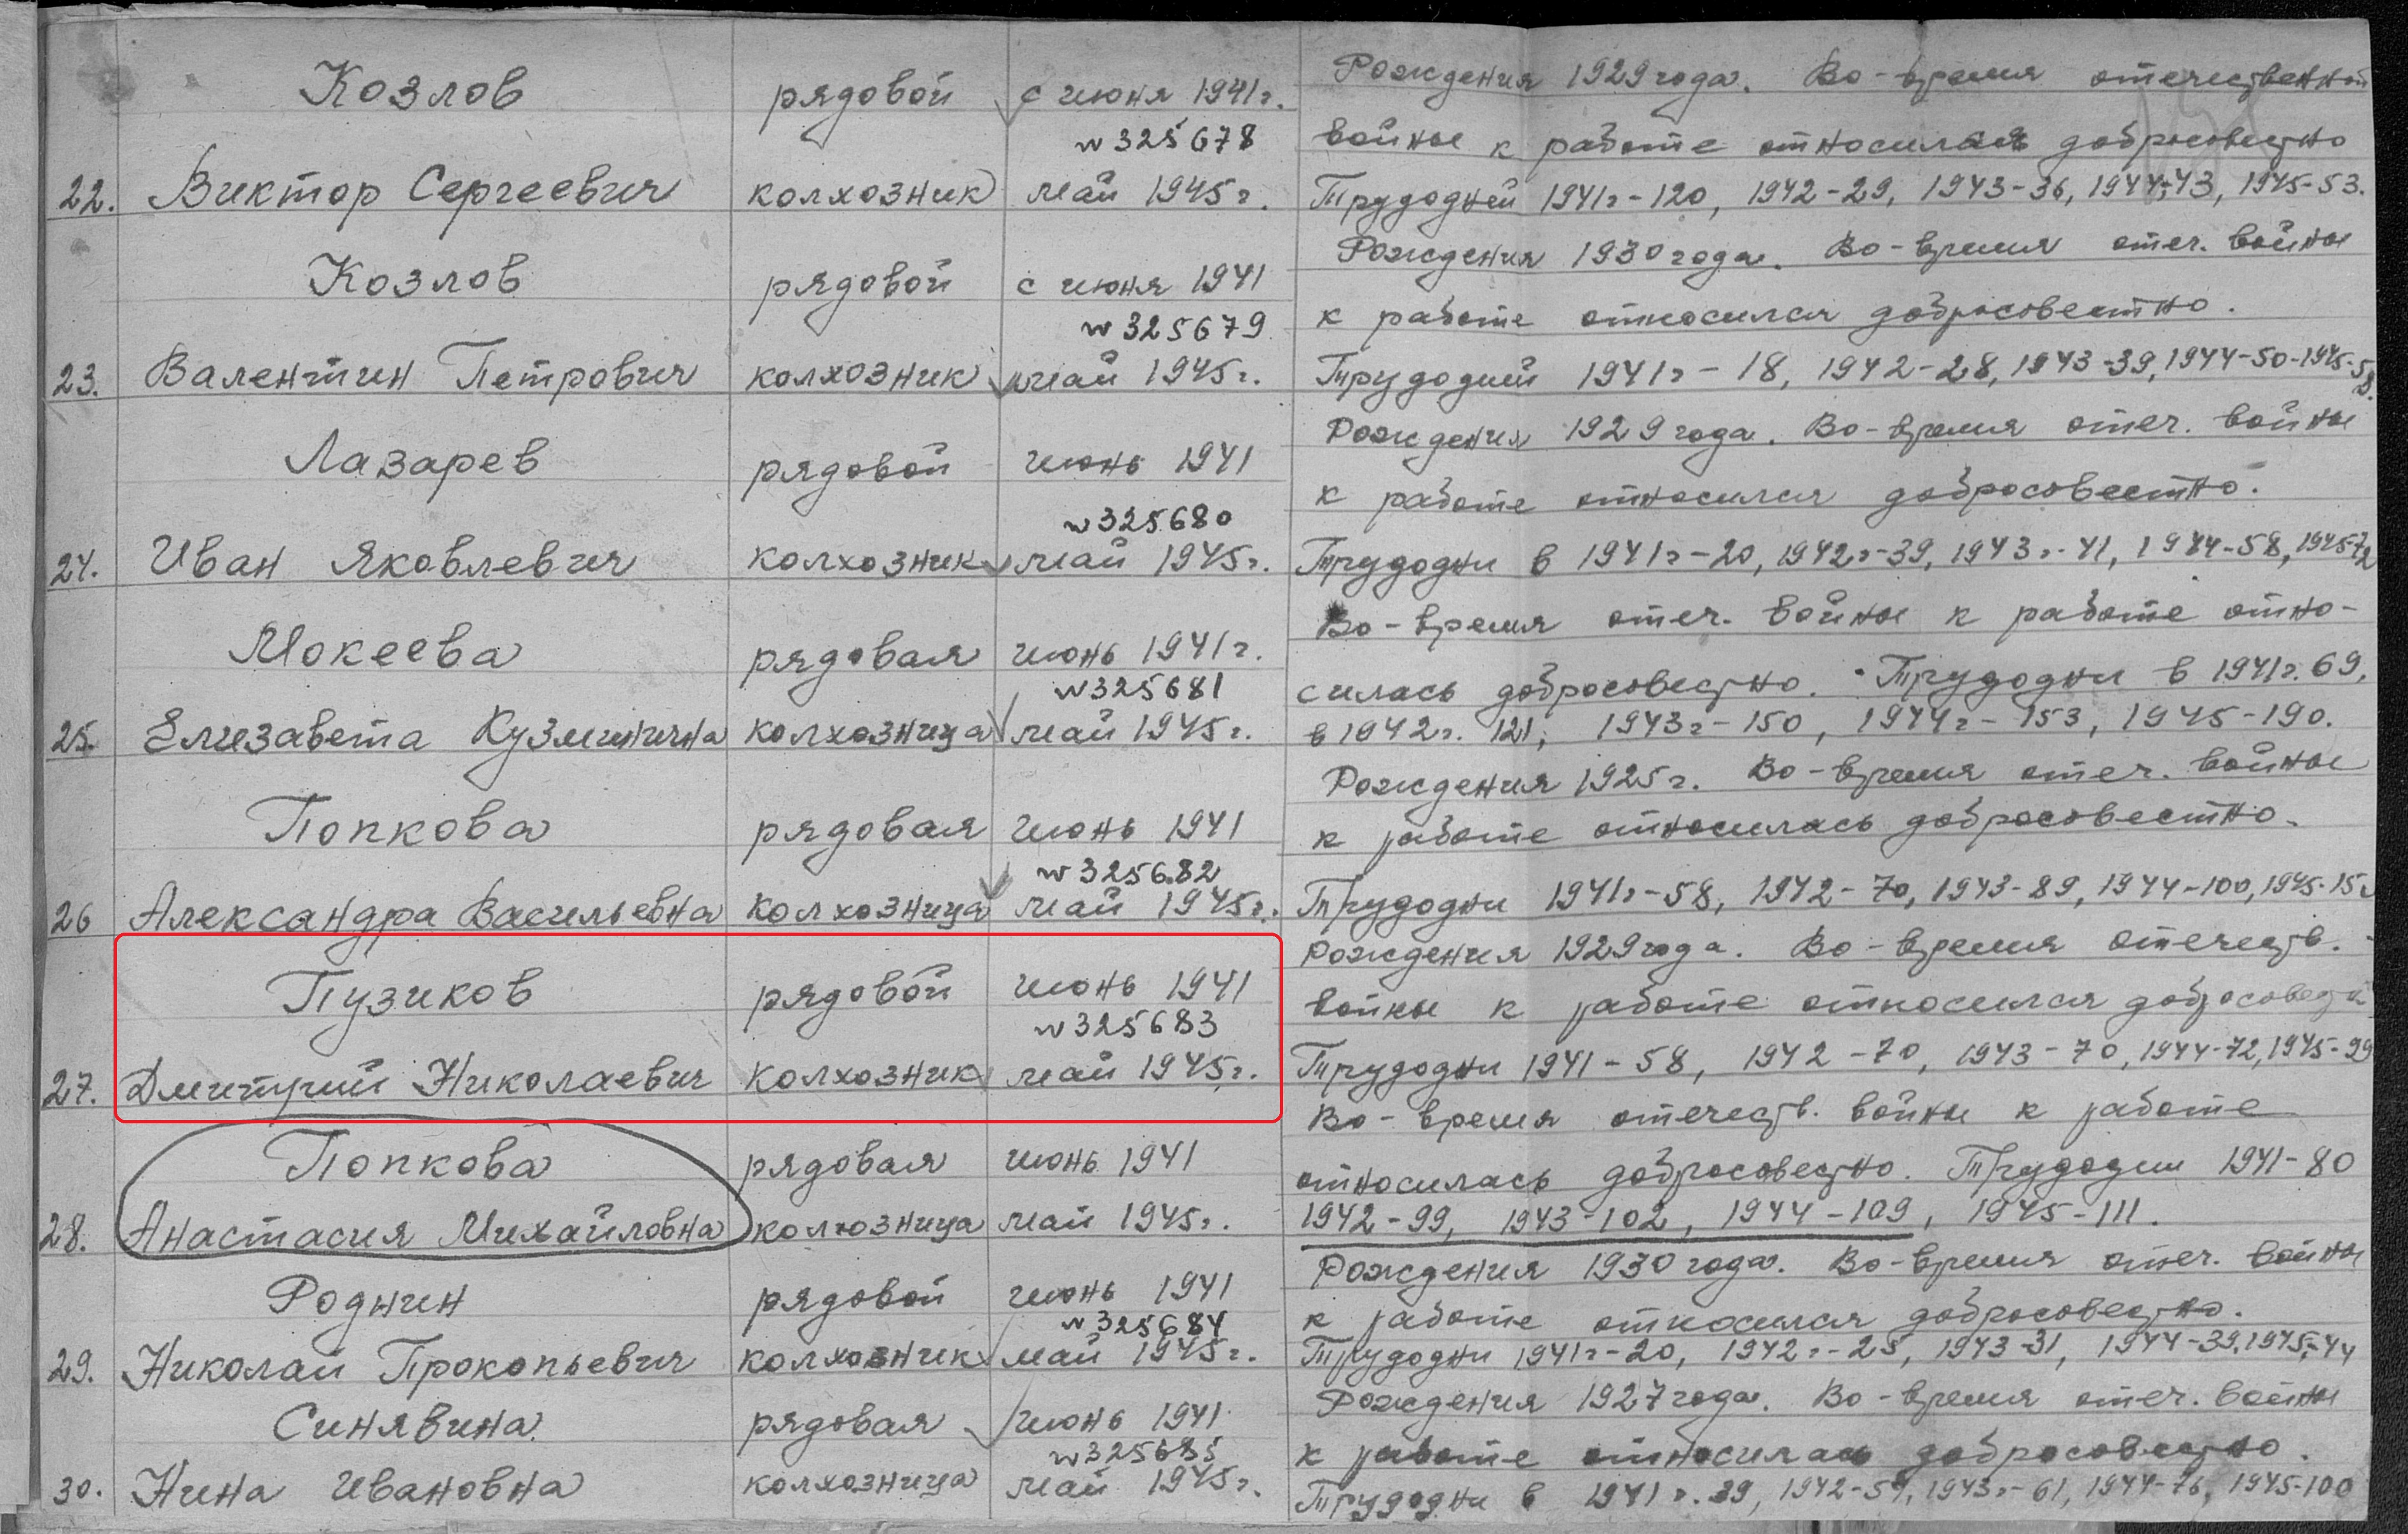 Козлов рядовой с июня 1941г. Рождения 1929 года. Во-время отечественной
w 325678 войны к работе относился добросовестно
22. Виктор Сергеевич колхозник май 1945г. Трудодней 1941г-120, 1942-29, 1943-36, 1944-43, 1945-53.
Козлов рядовой с июня 1941 Рождения 1930 года. Во-время отеч. войны
w 325679 к работе относился добросовестно.
23. Валентин Петрович колхозник май 1945г. Трудодней 1941г-18, 1942-28, 1943-39, 1944-50-1945-58.
Лазарев рядовой июнь 1941 Рождения 1929 года. Во-время отеч. войны
w 325680 к работе относился добросовестно.
24. Иван Яковлевич колхозник май 1945г. Трудодни в 1941г-20, 1942г-39, 1943г-41, 1944-58, 1945-72
Мокеева рядовая июнь 1941г. Во-время отеч. войны к работе отно-
w 325681 силась добросовестно. Трудодни в 1941г. 69,
25. Елизавета Кузминична колхозница май 1945г. в 1942г. 121, 1943г-150, 1944г-153, 1945-190.
Попкова рядовая июнь 1941 Рождения 1925г. Во-время отеч. войны
w 325682 к работе относилась добросовестно.
26 Александра Васильевна колхозница май 1945г. Трудодни 1941г-58, 1942-70, 1943-89, 1944-100, 1945-15
Пузиков рядовой июнь 1941 Рождения 1929 года. Во-время отечеств.
w 325683 войны к работе относился добросовест
27. Дмитрий Николаевич колхозник май 1945г. Трудодни 1941-58, 1942-70, 1943-70, 1944-72, 1945-99
Попкова рядовая июнь 1941 Во-время отечеств. войны к работе
относилась добросовестно. Трудодни 1941-80
28. Анастасия Михайловна колхозница май 1945г. 1942-99, 1943-102, 1944-109, 1945-111.
Роднин рядовой июнь 1941 Рождения 1930 года. Во-время отеч. войны
w 325684 к работе относился добросовестно.
29. Николай Прокопьевич колхозник май 1945г. Трудодни 1941г-20, 1942г-25, 1943-31, 1944-39, 1945-44
Синявина рядовая июнь 1941 Рождения 1927 года. Во-время отеч. войны
w 325685 к работе относилась добросовестно.
30. Нина Ивановна колхозница май 1945г. Трудодни в 1941г. 39, 1942-59, 1943г-61, 1944-76, 1945-100